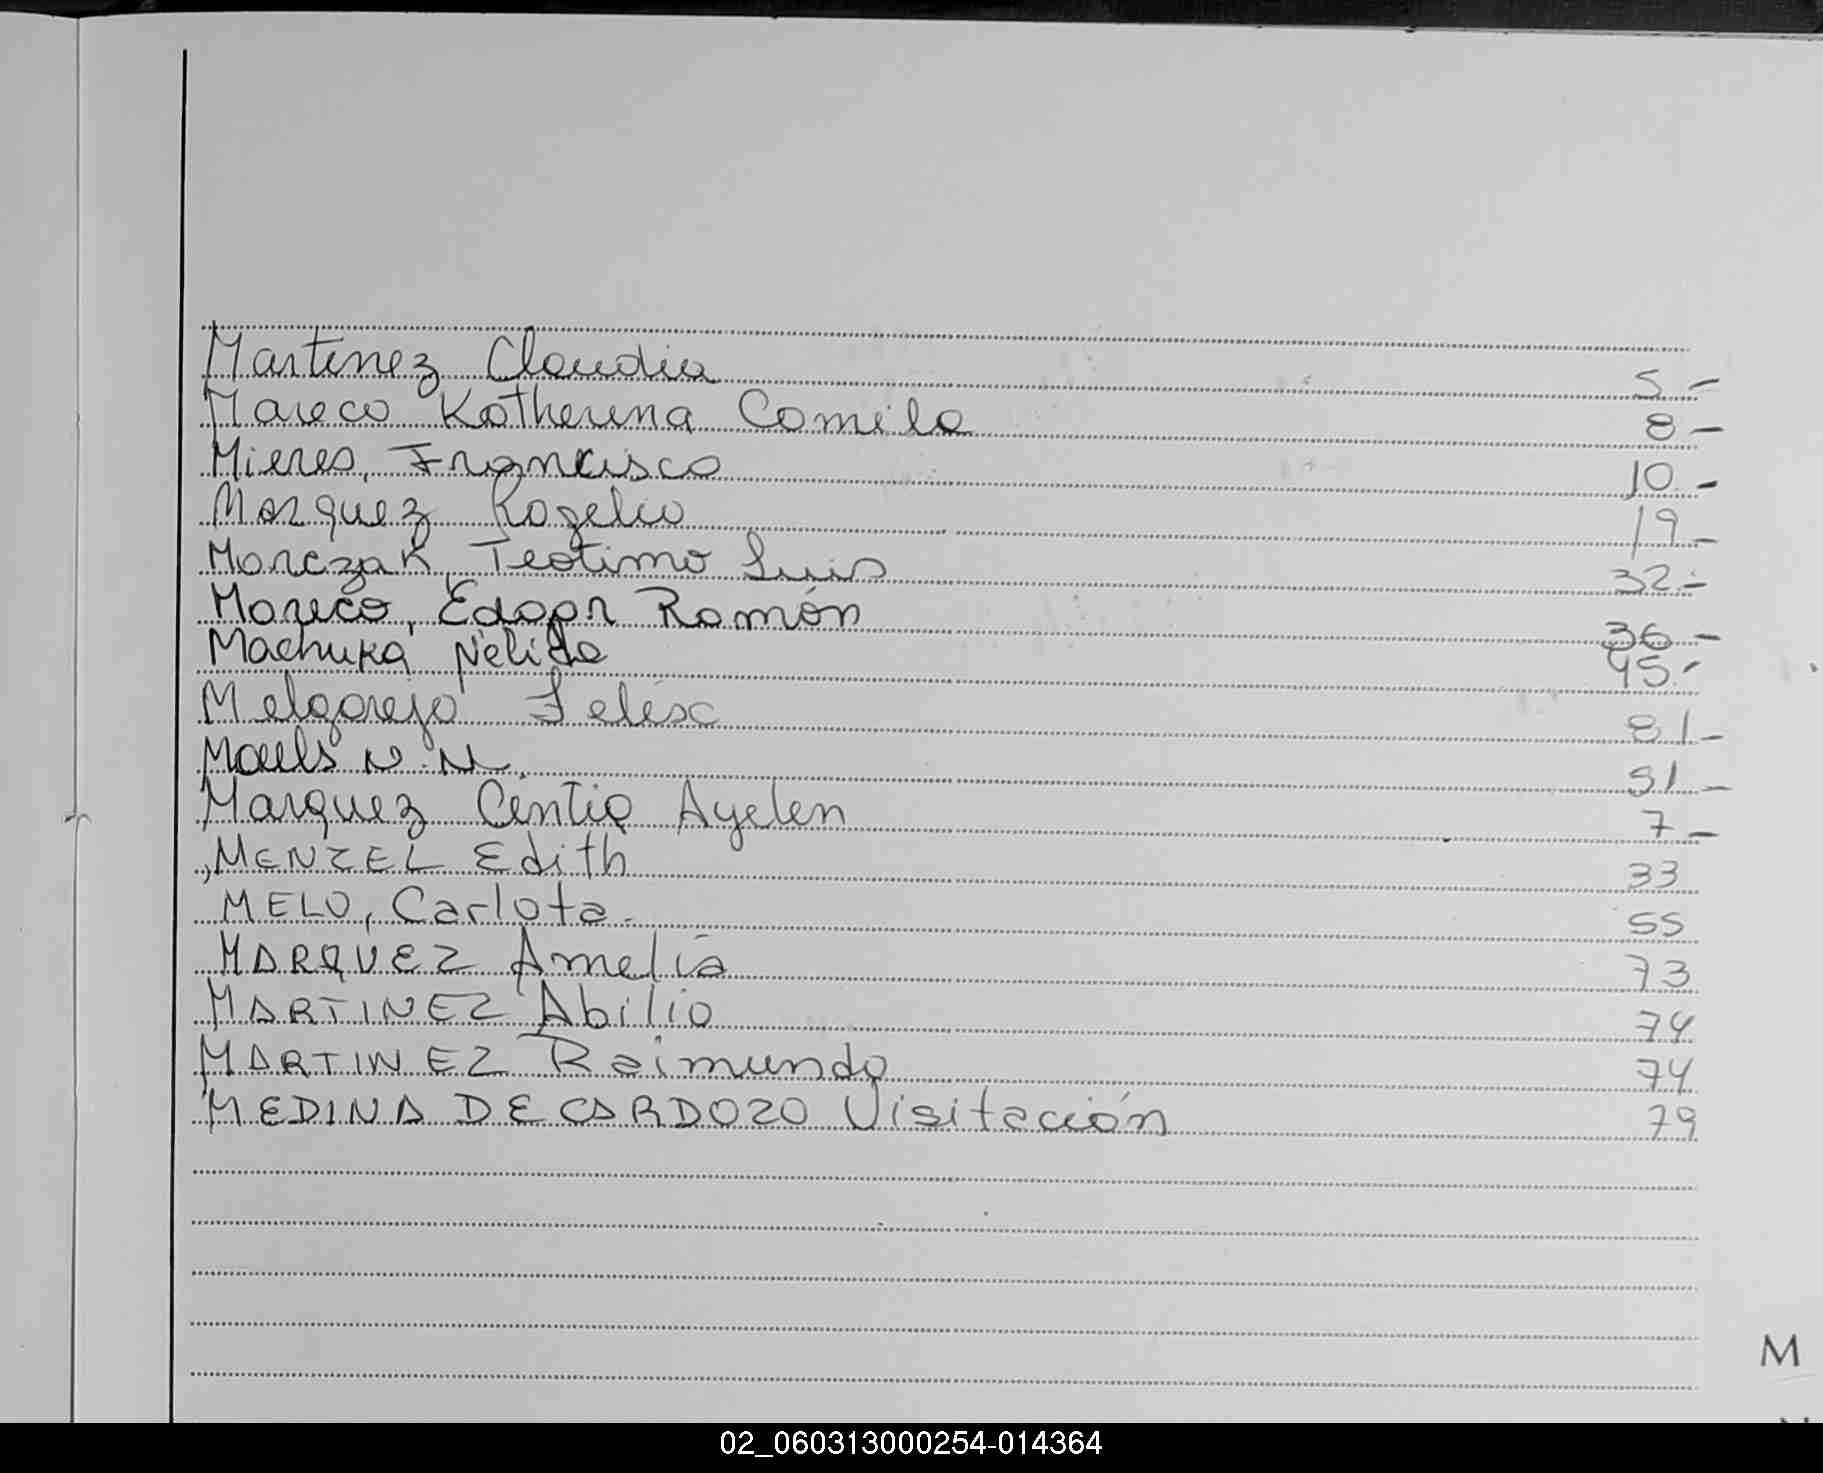 Martinez Claudia 5-
Mareco Katherina Camila 8-
Mieres, Francisco 10-
Marquez Rogelio 19-
Marczak, Teotimo Luis 32.-
Mareco, Edgar Ramón 36-
Machuka, Nelida 45.-
Melgarejo Felisc 81-
N.N. 51-
Marquez Cintia Ayelen 7-
MENZEL Edith 33
MELO, Carlota. 55
MARQUEZ Amelia 73
MARTINEZ Abilio 74
MARTINEZ Raimundo 74
MEDINA DE CARDOZO Visitación 79
M
02_060313000254-014364